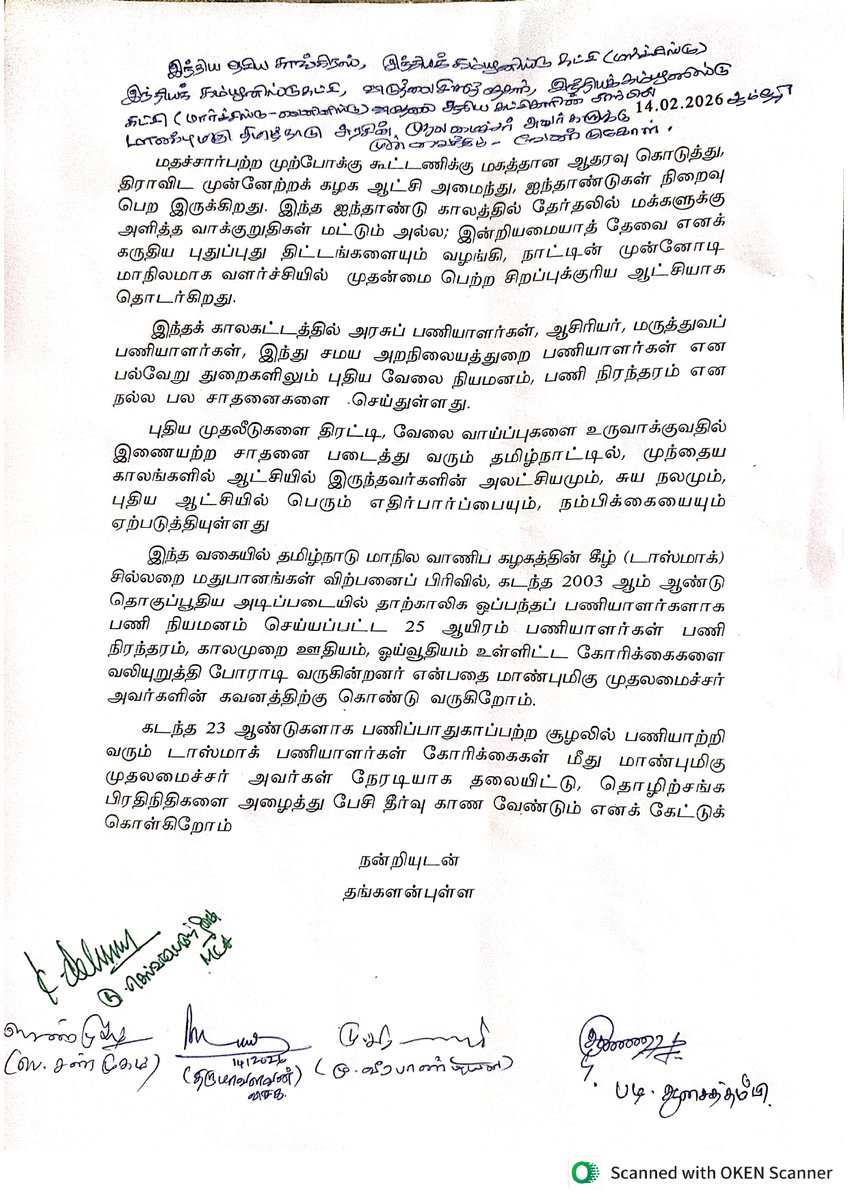 இந்திய தேசிய காங்கிரஸ், இந்தியக் கம்யூனிஸ்டு கட்சி (மார்க்சிஸ்டு)
இந்தியக் கம்யூனிஸ்டு கட்சி, விடுதலை சிறுத்தைகள், இந்தியக் கம்யூனிஸ்டு
கட்சி (மார்க்சிஸ்டு-லெனினிஸ்டு) விடுதலை ஆகிய கட்சிகளின் சார்பில்
மாண்புமிகு தமிழ்நாடு அரசின் முதலமைச்சர் அவர்களுக்கு 14.02.2026 ஆம் தேதி
வேண்டுகோள்.
மதச்சார்பற்ற முற்போக்கு கூட்டணிக்கு மகத்தான ஆதரவு கொடுத்து,
திராவிட முன்னேற்றக் கழக ஆட்சி அமைந்து, ஐந்தாண்டுகள் நிறைவு
பெற இருக்கிறது. இந்த ஐந்தாண்டு காலத்தில் தேர்தலில் மக்களுக்கு
அளித்த வாக்குறுதிகள் மட்டும் அல்ல; இன்றியமையாத் தேவை எனக்
கருதிய புதுப்புது திட்டங்களையும் வழங்கி, நாட்டின் முன்னோடி
மாநிலமாக வளர்ச்சியில் முதன்மை பெற்ற சிறப்புக்குரிய ஆட்சியாக
தொடர்கிறது.
இந்தக் காலகட்டத்தில் அரசுப் பணியாளர்கள், ஆசிரியர், மருத்துவப்
பணியாளர்கள், இந்து சமய அறநிலையத்துறை பணியாளர்கள் என
பல்வேறு துறைகளிலும் புதிய வேலை நியமனம், பணி நிரந்தரம் என
நல்ல பல சாதனைகளை செய்துள்ளது.
புதிய முதலீடுகளை திரட்டி, வேலை வாய்ப்புகளை உருவாக்குவதில்
இணையற்ற சாதனை படைத்து வரும் தமிழ்நாட்டில், முந்தைய
காலங்களில் ஆட்சியில் இருந்தவர்களின் அலட்சியமும், சுய நலமும்,
புதிய ஆட்சியில் பெரும் எதிர்பார்ப்பையும், நம்பிக்கையையும்
ஏற்படுத்தியுள்ளது
இந்த வகையில் தமிழ்நாடு மாநில வாணிப கழகத்தின் கீழ் (டாஸ்மாக்)
சில்லறை மதுபானங்கள் விற்பனைப் பிரிவில், கடந்த 2003 ஆம் ஆண்டு
தொகுப்பூதிய அடிப்படையில் தாற்காலிக ஒப்பந்தப் பணியாளர்களாக
பணி நியமனம் செய்யப்பட்ட 25 ஆயிரம் பணியாளர்கள் பணி
நிரந்தரம், காலமுறை ஊதியம், ஓய்வூதியம் உள்ளிட்ட கோரிக்கைகளை
வலியுறுத்தி போராடி வருகின்றனர் என்பதை மாண்புமிகு முதலமைச்சர்
அவர்களின் கவனத்திற்கு கொண்டு வருகிறோம்.
கடந்த 23 ஆண்டுகளாக பணிப்பாதுகாப்பற்ற சூழலில் பணியாற்றி
வரும் டாஸ்மாக் பணியாளர்கள் கோரிக்கைகள் மீது மாண்புமிகு
முதலமைச்சர் அவர்கள் நேரடியாக தலையிட்டு, தொழிற்சங்க
பிரதிநிதிகளை அழைத்து பேசி தீர்வு காண வேண்டும் எனக் கேட்டுக்
கொள்கிறோம்
நன்றியுடன்
தங்களன்புள்ள
(பெ. சண்முகம்)
(திருமாவளவன்)
விசிக.
(மு. வீரபாண்டியன்)
பழ. ஆசைத்தம்பி.
Scanned with OKEN Scanner